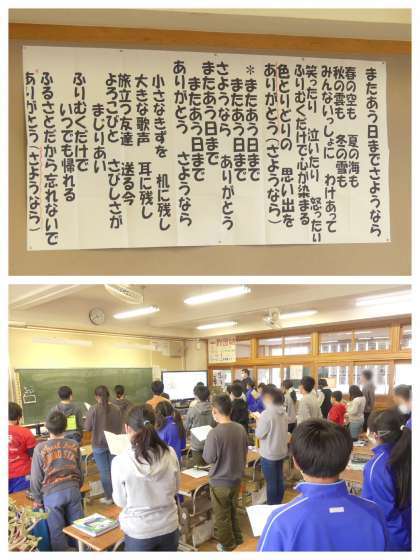 またあう日までさようなら
春の空も 夏の海も
秋の雲も 冬の雪も
みんないっしょに わけあって
笑ったり 泣いたり 怒ったり
ふりむくだけで心が染まる
色とりどりの 思い出を
ありがとう(さようなら)
*またあう日まで
またあう日まで
さようなら ありがとう
またあう日まで
またあう日まで
ありがとう さようなら
小さなきずを 机に残し
大きな歌声 耳に残し
旅立つ友達 送る今
よろこびと さびしさが
まじりあい
ふりむくだけで
いつでも帰れる
ふるさとだから忘れないで
ありがとう(さようなら)